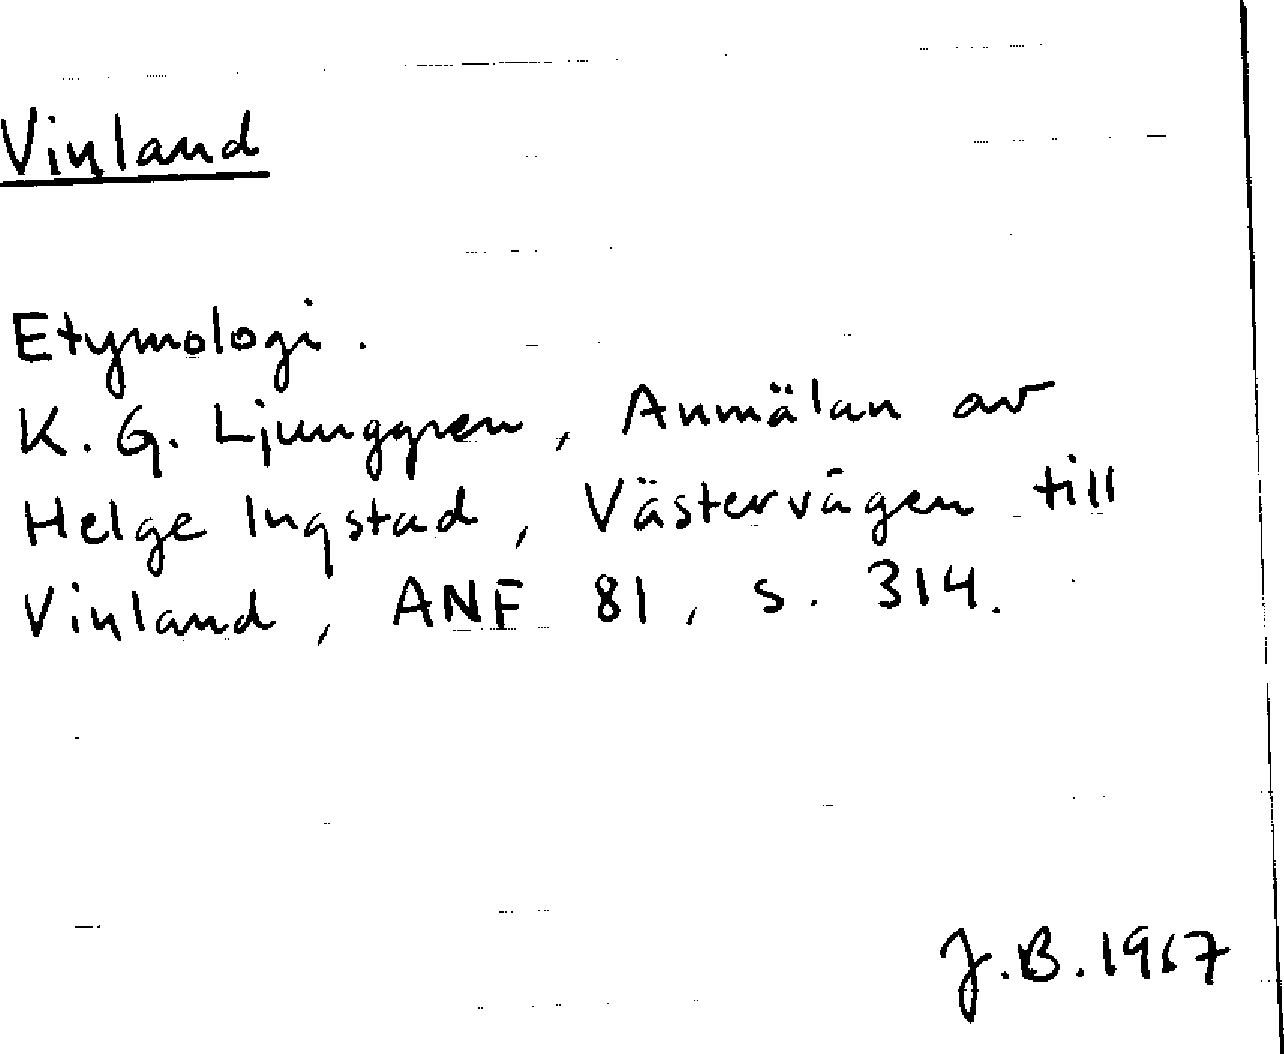 Vinland
Etymologi.
K. G. Ljunggren, Anmälan av
Helge Ingstad, Västervägen till
Vinland, ANF 81, s. 314.
J.B. 1967